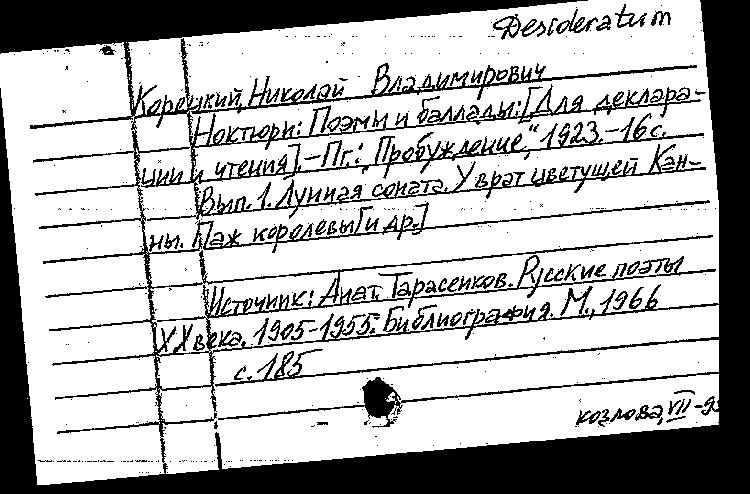 Desideratum
Корецкий, Николай Владимирович
Ноктюрн: Поэмы и баллады: [Для деклара-
ции и чтения]. - Пг.: "Пробуждение", 1923. - 16 с.
Вып. 1. Лунная соната. У врат цветущей Кан-
ны. Паж королевы [и др.]
Источник: Анат. Тарасенков. Русские поэты
XX века. 1905-1955. Библиография. М., 1966
с. 185
козлова, VII-9